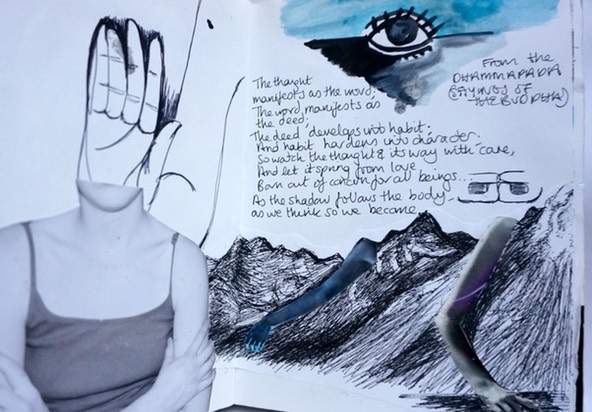 The thought
manifests as the word;
The word manifests as
the deed;
The deed develops into habit;
And habit hardens into character.
So watch the thought & its way with care,
And let it spring from love
Born out of concern for all beings...
As the shadow follows the body
as we think so we become.
From the
DHAMMAPADA
(SAYINGS OF
THE BUDDHA)